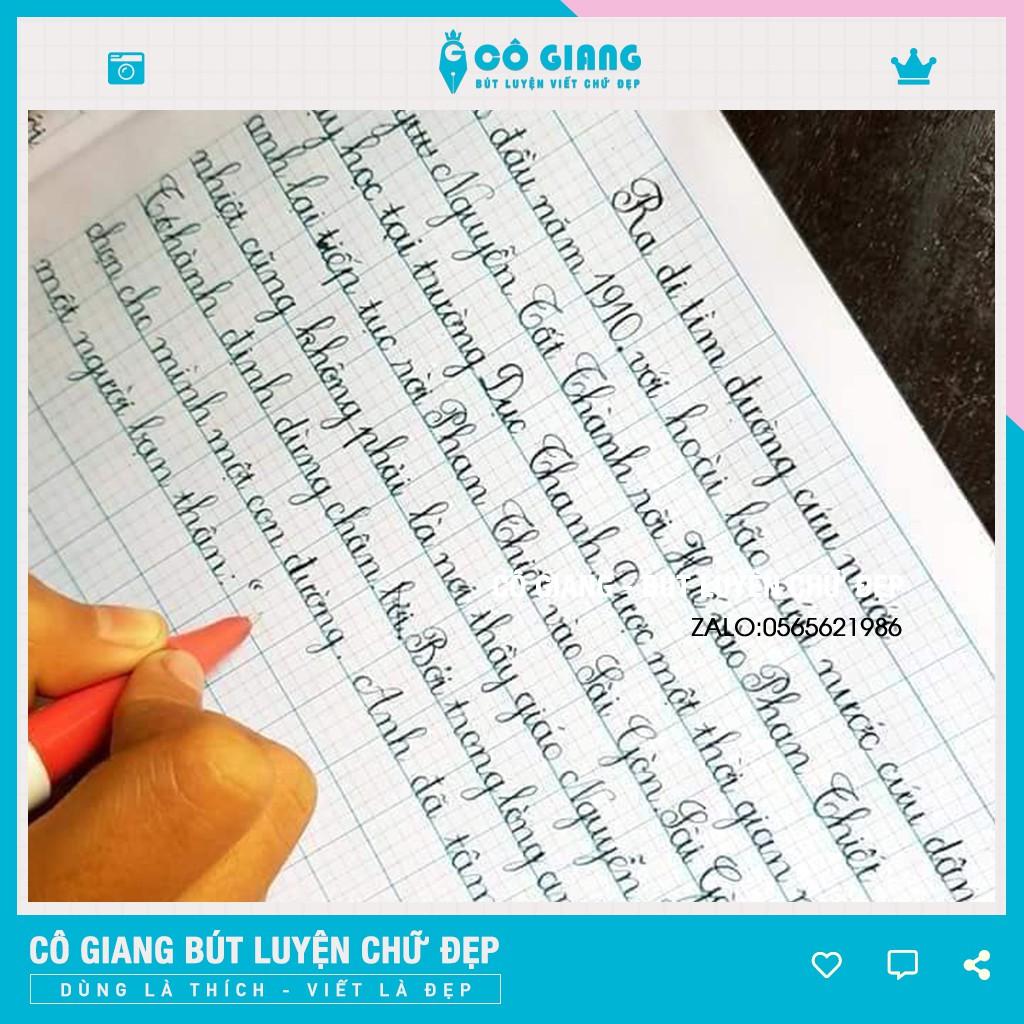 CÔ GIANG
BÚT LUYỆN VIẾT CHỮ ĐẸP
Ra đi tìm đường cứu nước
đầu năm 1910, với hoài bão cứu nước cứu dân
Nguyễn Tất Thành rời Huế vào Phan Thiết
học tại trường Dục Thanh. Được một thời gian
anh lại tiếp tục rời Phan Thiết vào Sài Gòn. Sài
nhiệt cũng không phải là nơi thầy giáo Nguyễn
định dừng chân tới. Bởi trong lòng
chọn cho mình một con đường. Anh đã tâm
một người bạn thân: "
CÔ GIANG - BÚT LUYỆN CHỮ ĐẸP
ZALO:0565621986
CÔ GIANG BÚT LUYỆN CHỮ ĐẸP
DÙNG LÀ THÍCH - VIẾT LÀ ĐẸP